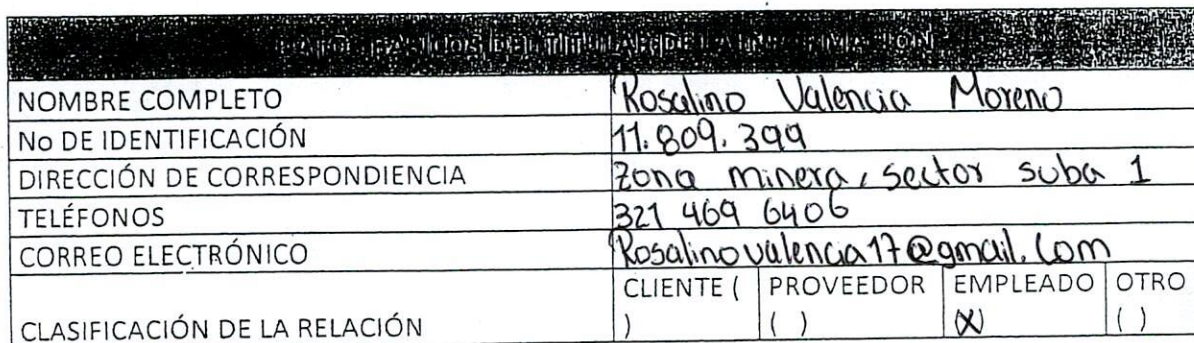 DATOS BASICOS DEL TITULAR DE LA INFORMACION
NOMBRE COMPLETO Rosalino Valencia Moreno
No DE IDENTIFICACIÓN 11.809.399
DIRECCIÓN DE CORRESPONDIENCIA Zona minera, sector suba 1
TELÉFONOS 321 469 6406
CORREO ELECTRÓNICO Rosalinovalencia17@gmail.com
CLASIFICACIÓN DE LA RELACIÓN CLIENTE ( ) PROVEEDOR ( ) EMPLEADO (X) OTRO ( )